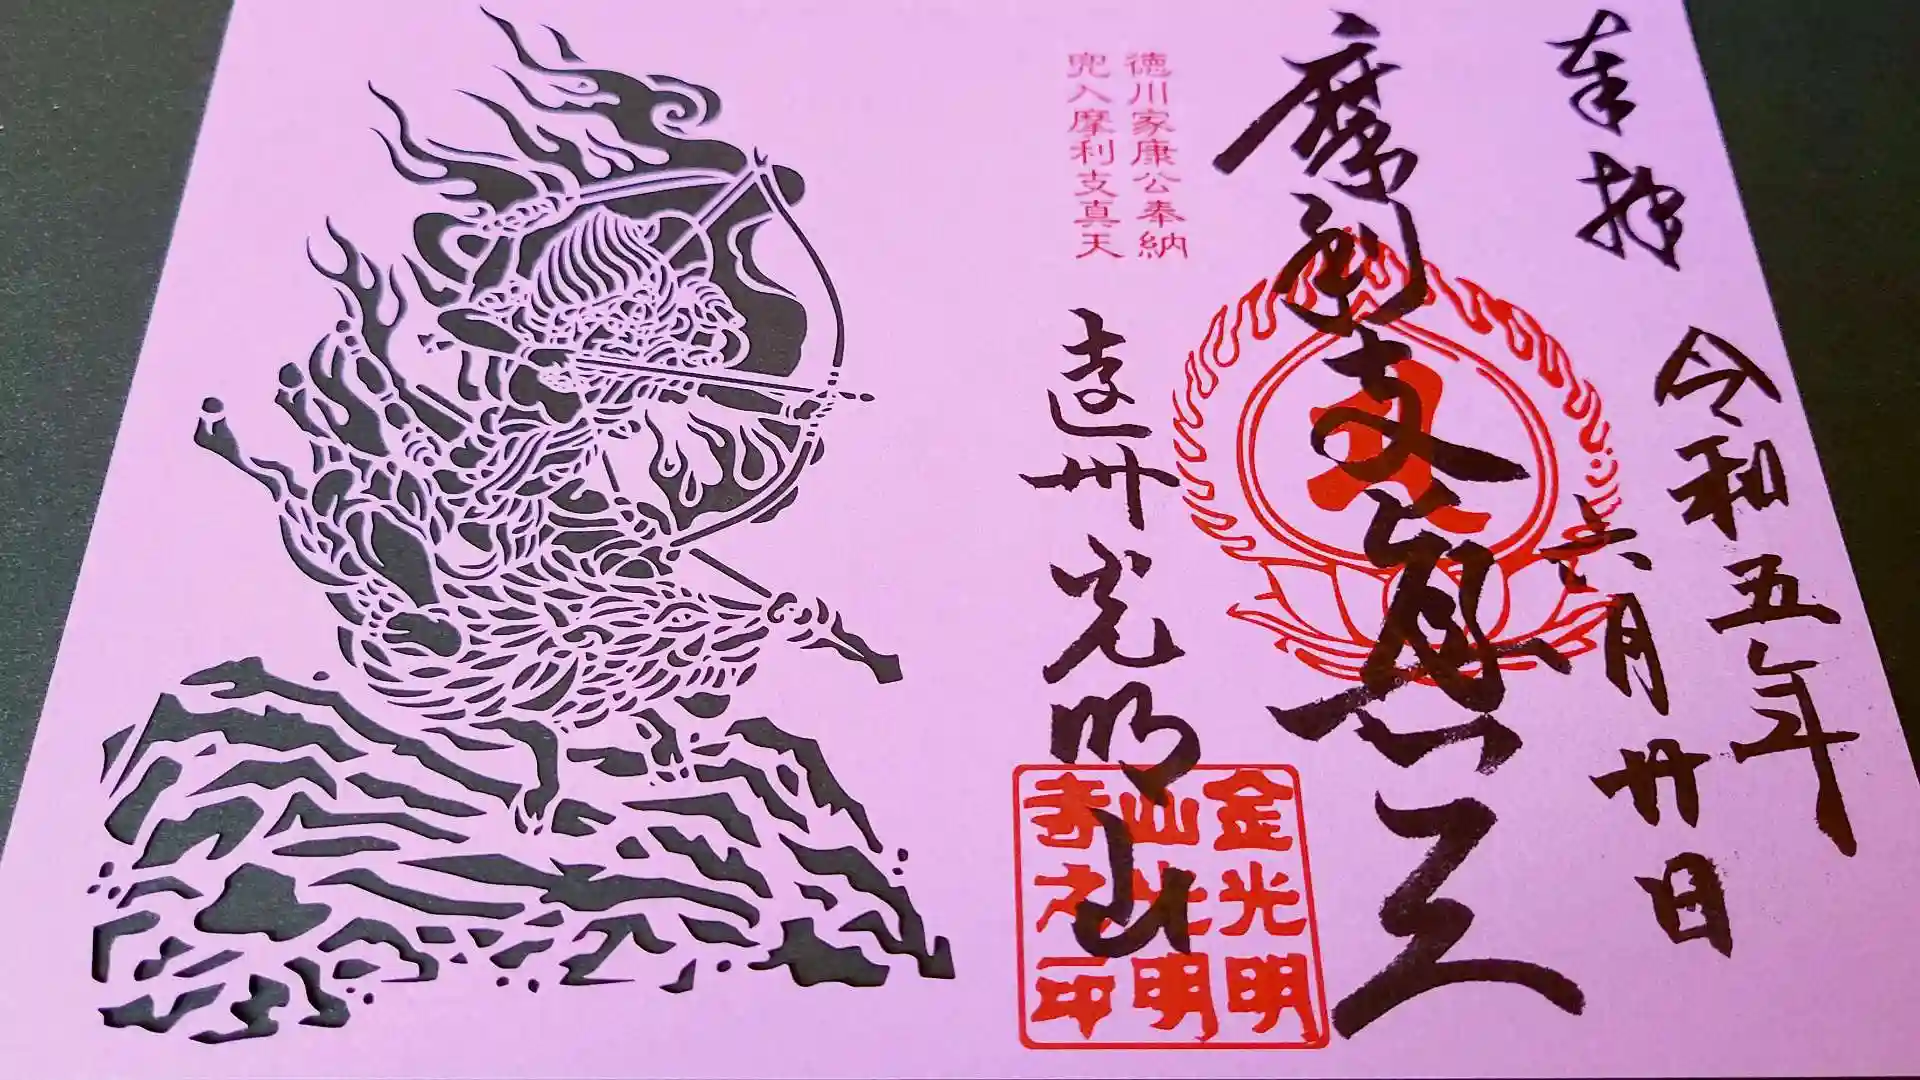 奉拝
令和五年
六月廿日
摩利支真天
徳川家康公奉納
兜入摩利支真天
遠州光明山
金光明
山光明
寺之印